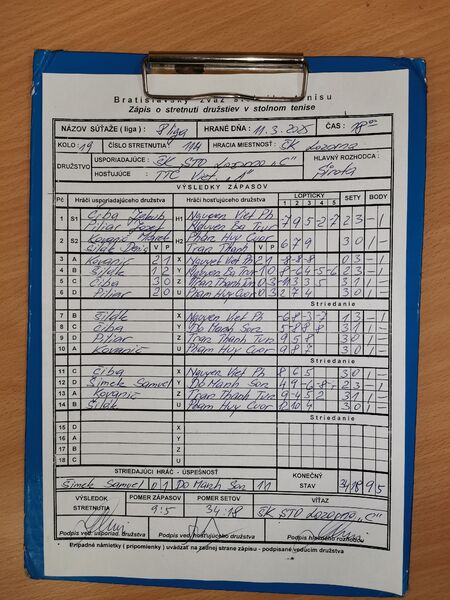 Bratislavský zväz stolného tenisu
Zápis o stretnutí družstiev v stolnom tenise
NÁZOV SÚŤAŽE ( liga ) : 8 liga HRANÉ DŇA : 11.3.2025 ČAS : 18 00
KOLO : 19 ČÍSLO STRETNUTIA : 114 HRACIA MIESTNOSŤ : ŠK Lozorno
DRUŽSTVO USPORIADAJÚCE : ŠK STO Lozorno "C" HLAVNÝ ROZHODCA :
HOSŤUJÚCE : TTC Viet "1" Široka
VÝSLEDKY ZÁPASOV
Pč Hráči usporiadajúceho družstva Hráči hosťujúceho družstva LOPTIČKY SETY BODY
1 2 3 4 5
1 S1 Ciba Jakub H1 Nguyen Viet Ph -7 9 5 -2 -7 2 3 - 1
Piliar Jozef
2 S2 Kovanič Marek V P H2 Pham Huy Cuor V P 6 7 9 3 0 1 -
Tran Thanh
3 A Kovanič 2 1 X Nguyen Viet Ph 2 1 -8 -8 -8 0 3 - 1
4 B Šilák 1 2 Y
5 C Ciba 3 0 Z 3 1 1 -
6 D Piliar 2 0 U Pham Huy Cuor 0 3 2 7 4 3 0 1 -
Striedanie
7 B Šilák X Nguyen Viet Ph -6 8 -3 -7 1 3 - 1
8 C Ciba Y Do Manh Son 3 1 1 -
9 D Piliar Z Tran Thanh Tun 9 5 8 3 0 1 -
10 A Kovanič U Pham Huy Cuor 9 8 7 3 0 1 -
Striedanie
11 C Ciba X Nguyen Viet Ph 8 6 5 3 0 1 -
12 D Šimek Samuel Y Do Manh Son 2 3 - 1
13 A Kovanič Z Tran Thanh Tun 9 -4 5 2 3 1 1 -
14 B Šilák U Pham Huy Cuor 12 10 4 3 0 1 -
Striedanie
15 D X
16 A Y
17 B Z
18 C U
STRIEDAJÚCI HRÁČ - ÚSPEŠNOSŤ KONEČNÝ
Šimek Samuel 0 1 Do Manh Son 1 1 STAV 34 18 9 5
VÝSLEDOK STRETNUTIA POMER ZÁPASOV POMER SETOV VÍŤAZ
9:5 34:18 ŠK STO Lozorno "C"
Podpis ved. usporiad. družstva Podpis ved. hosťujúceho družstva Podpis hlavného rozhodcu
Prípadné námietky ( pripomienky ) uvádzať na zadnej strane zápisu - podpísané vedúcim družstva